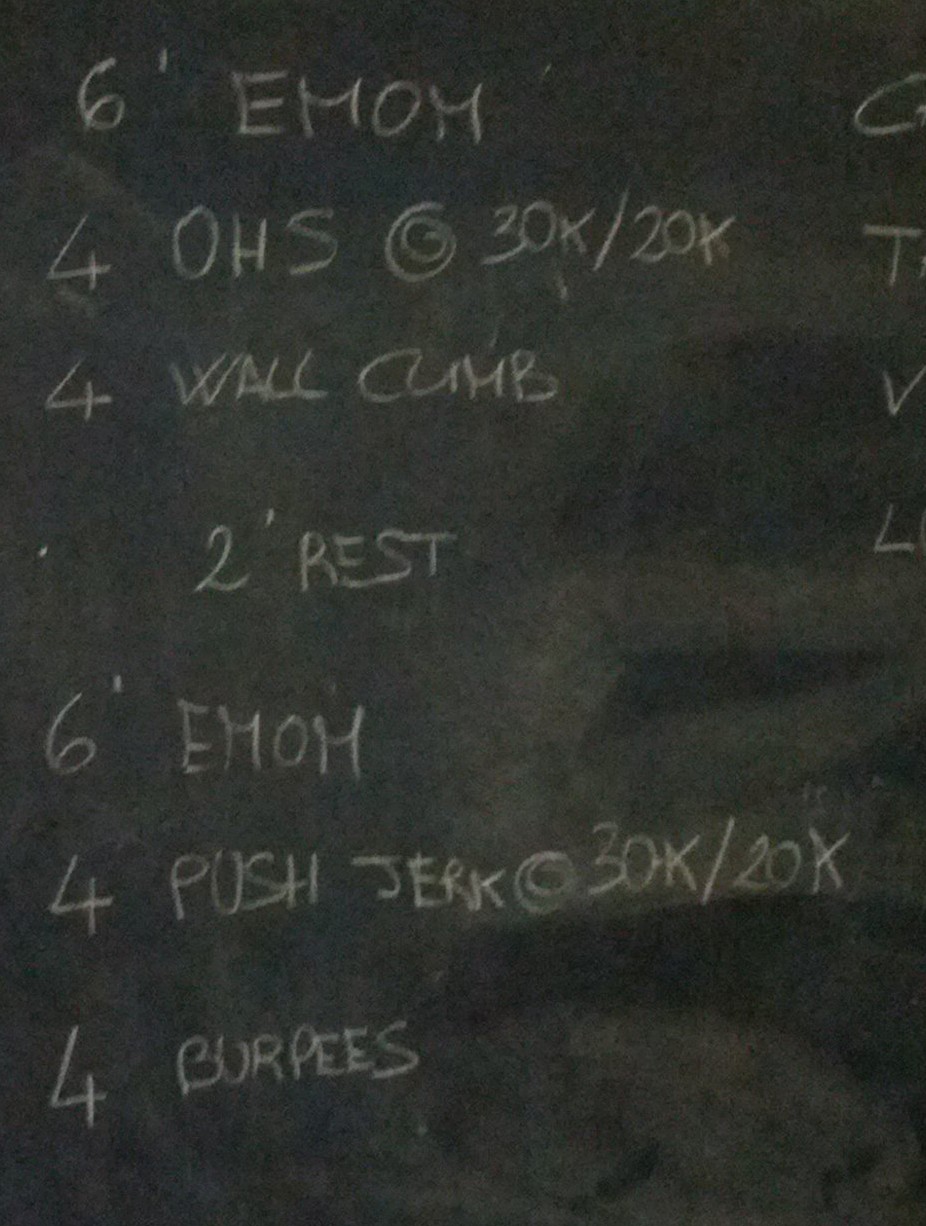 6' EMOM
4 OHS @ 30K/20K
4 WALL CLIMB
2' REST
6' EMOM
4 PUSH JERK @ 30K/20K
4 BURPEES